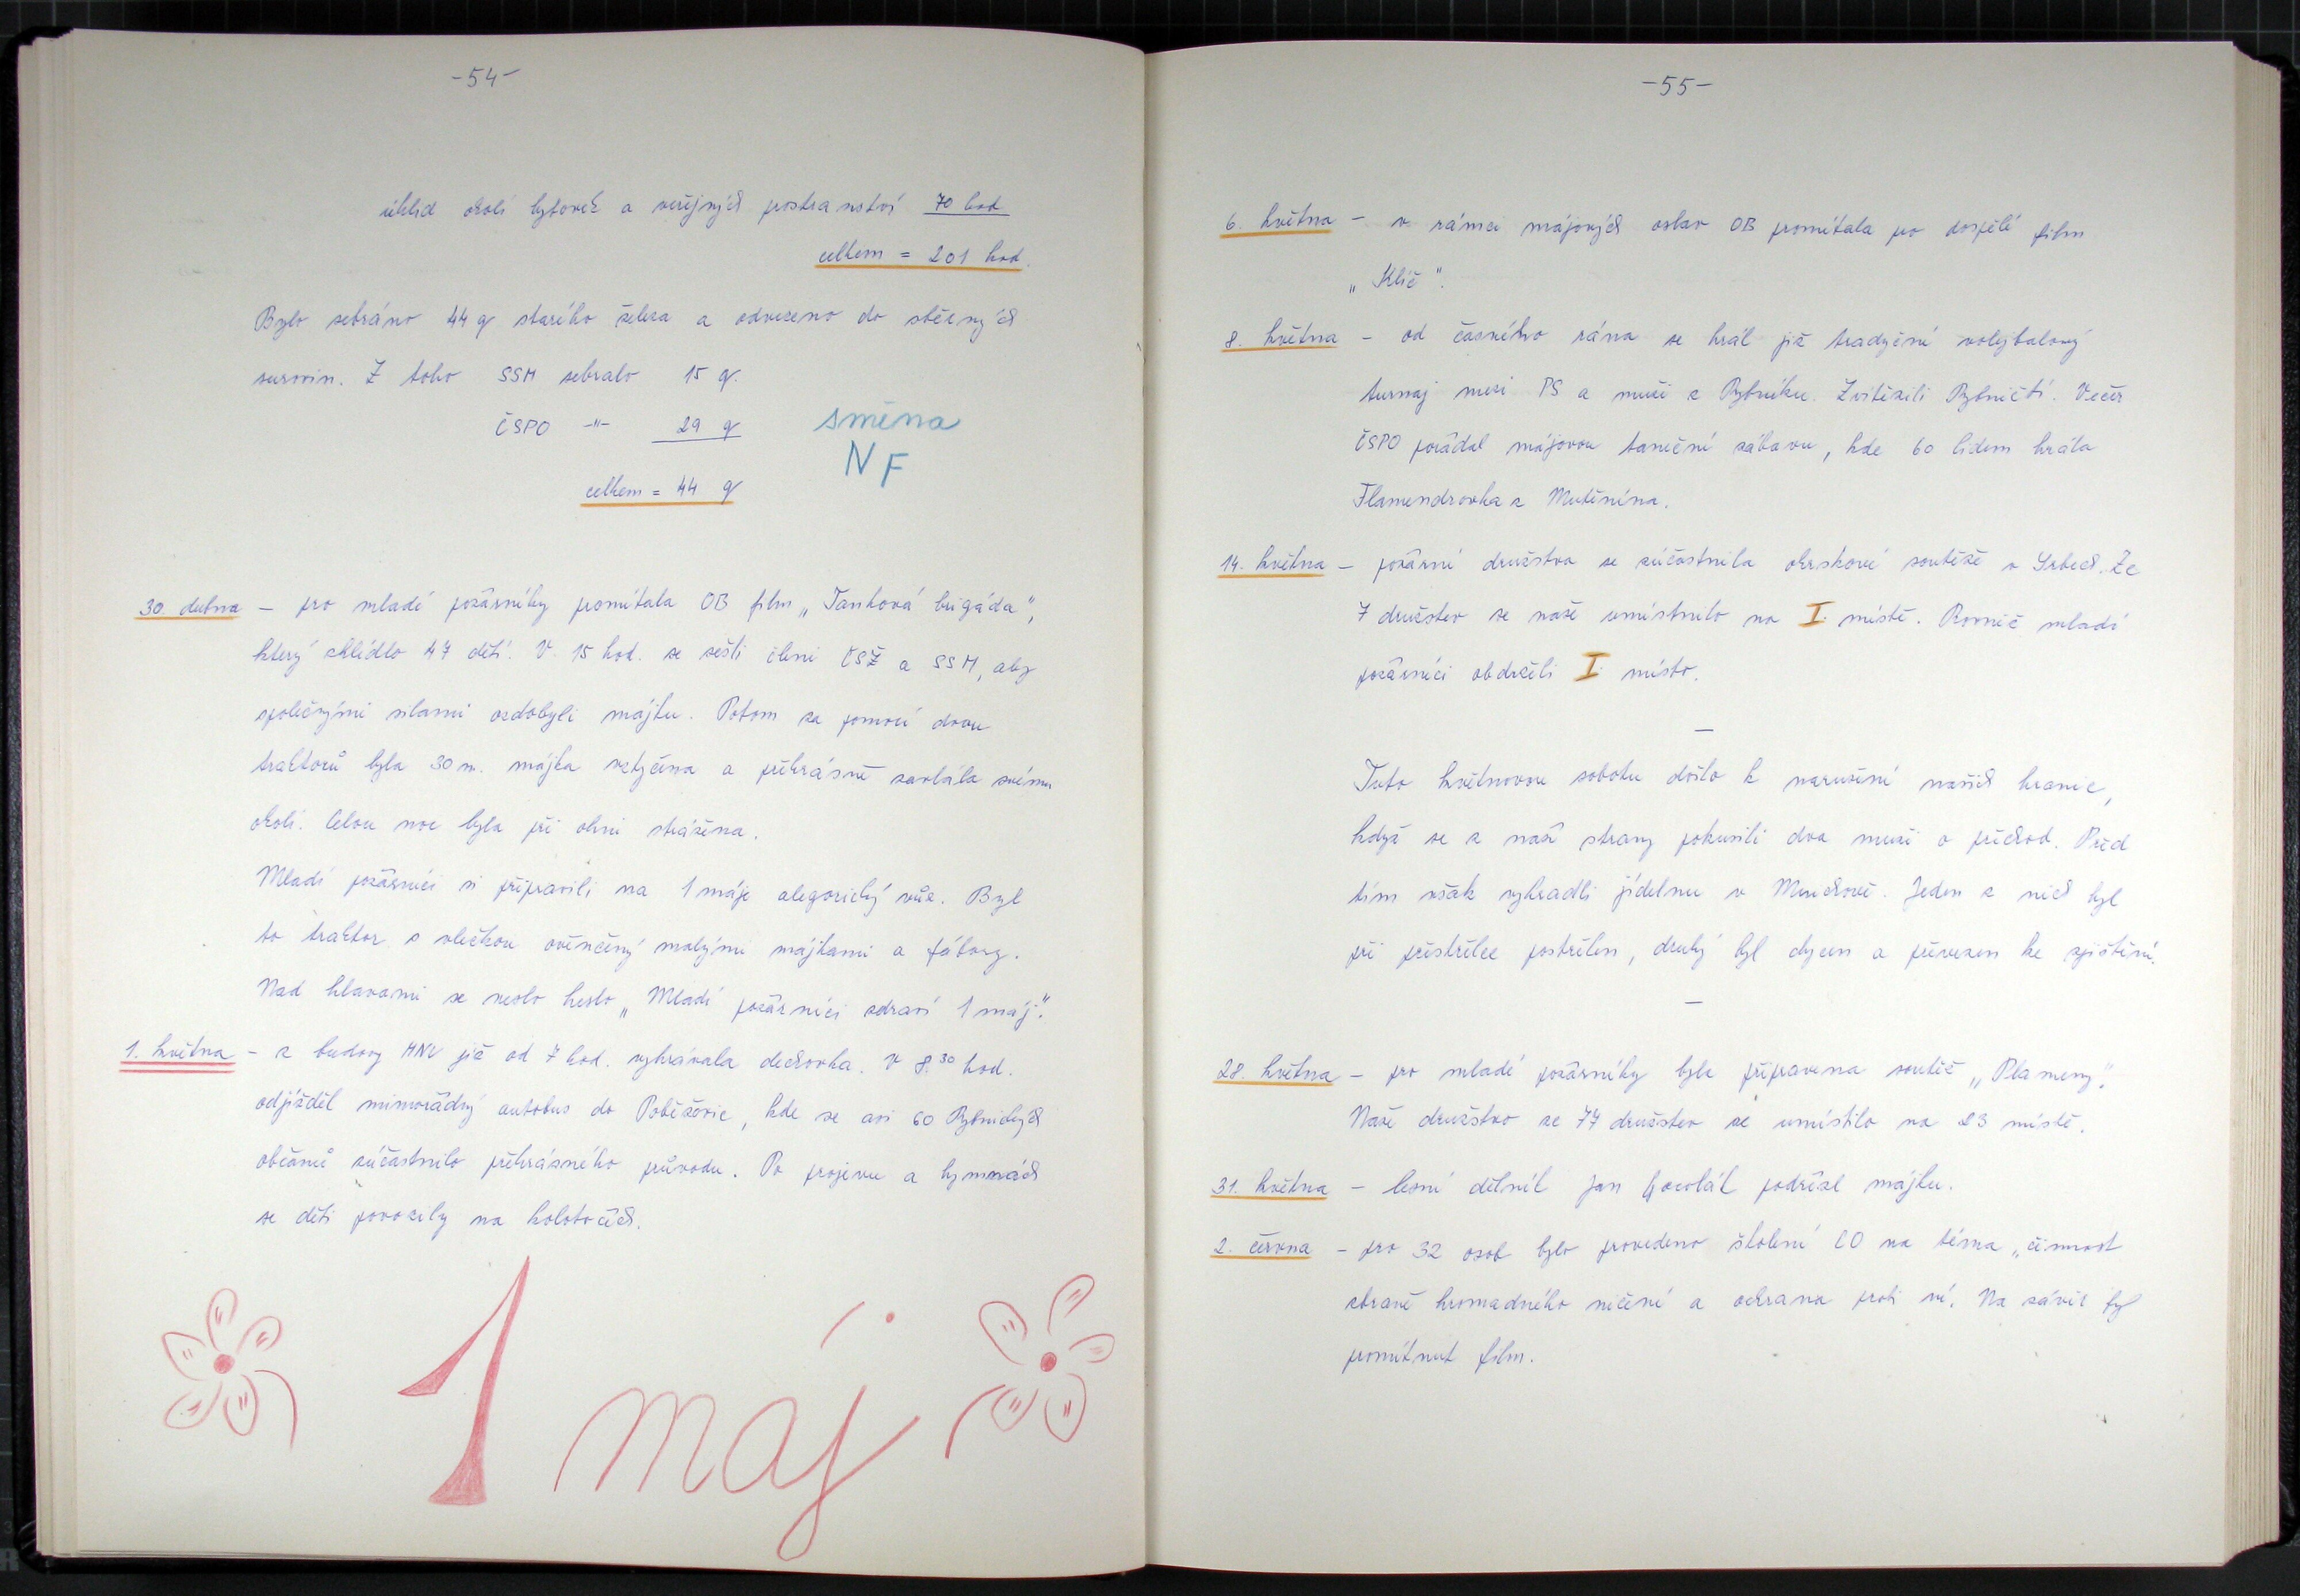 -54-
úklid okolí bytovek a veřejných prostranství 70 hod
celkem = 201 hod.
Bylo sebráno 44 q starého železa a odvezeno do sběrných
surovin. Z toho SSM sebralo 15 q.
ČSPO -"- 29 q
směna
NF
celkem = 44 q
30. dubna - pro mladé požárníky promítala OB film „Tanková brigáda",
který shlédlo 47 dětí. V 15 hod. se sešli členi ČSŽ a SSM, aby
společnými silami ozdobyli májku. Potom za pomocí dvou
traktorů byla 30 m. májka vztyčena a překrásně zavlála svému
okolí. Celou noc byla při ohni strážena.
Mladí požárníci si připravili na 1 máje alegorický vůz. Byl
to traktor s vlečkou ověnčený malými májkami a fábory.
Nad hlavami se neslo heslo „Mladí požárníci zdraví 1 máj".
1. května - z budovy MNV již od 7 hod. vyhrávala dechovka. V 8.30 hod.
odjížděl mimořádný autobus do Poběžovic, kde se asi 60 Rybnických
občanů zúčastnilo překrásného průvodu. Po projevu a hymnách
se děti povozily na kolotočích.
1 máj
-55-
6. května - v rámci májových oslav OB promítala pro dospělé film
„Klíč".
8. května - od časného rána se hrál již tradyční volejbalový
turnaj mezi PS a muži z Rybníku. Zvítězili Rybničtí. Večer
ČSPO pořádal májovou taneční zábavu, kde 60 lidem hrála
Flamendrovka z Mutěnína.
14. května - požární družstva se zúčastnila okrskové soutěže v Srbech. Ze
7 družstev se naše umístnilo na I. místě. Rovněž mladí
požárníci obdrželi I. místo.
-
Tuto květnovou sobotu došlo k narušení našich hranic,
když se z naší strany pokusili dva muži o přechod. Před
tím však vykradli jídelnu v Mnichově. Jeden z nich byl
při přestřelce postřelen, druhý byl chycen a převezen ke zjištění.
-
28. května - pro mladé požárníky byla připravena soutěž „Plameny".
Naše družstvo ze 77 družstev se umístilo na 23 místě.
31. května - lesní dělník Jan podřízl májku.
2. června - pro 32 osob bylo provedeno školení CO na téma „činnost
zbraně hromadného ničení a ochrana proti ní. Na závěr byl
promítnut film.